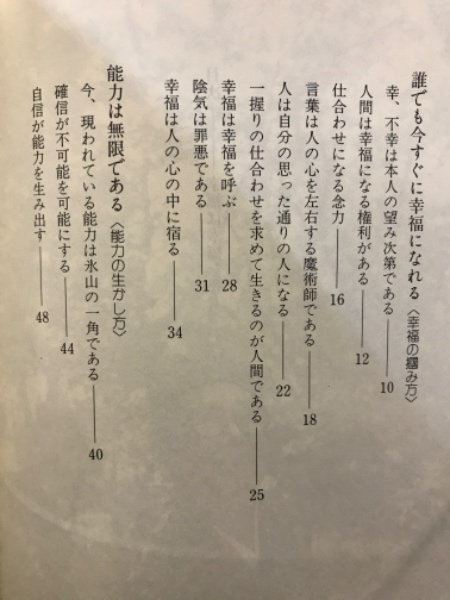 誰でも今すぐに幸福になれる〈幸福の摑み方〉
幸、不幸は本人の望み次第である――10
人間は幸福になる権利がある――12
仕合わせになる念力――16
言葉は人の心を左右する魔術師である――18
人は自分の思った通りの人になる――22
一握りの仕合わせを求めて生きるのが人間である――25
幸福は幸福を呼ぶ――28
陰気は罪悪である――31
幸福は人の心の中に宿る――34
能力は無限である〈能力の生かし方〉
今、現われている能力は氷山の一角である――40
確信が不可能を可能にする――44
自信が能力を生み出す――48